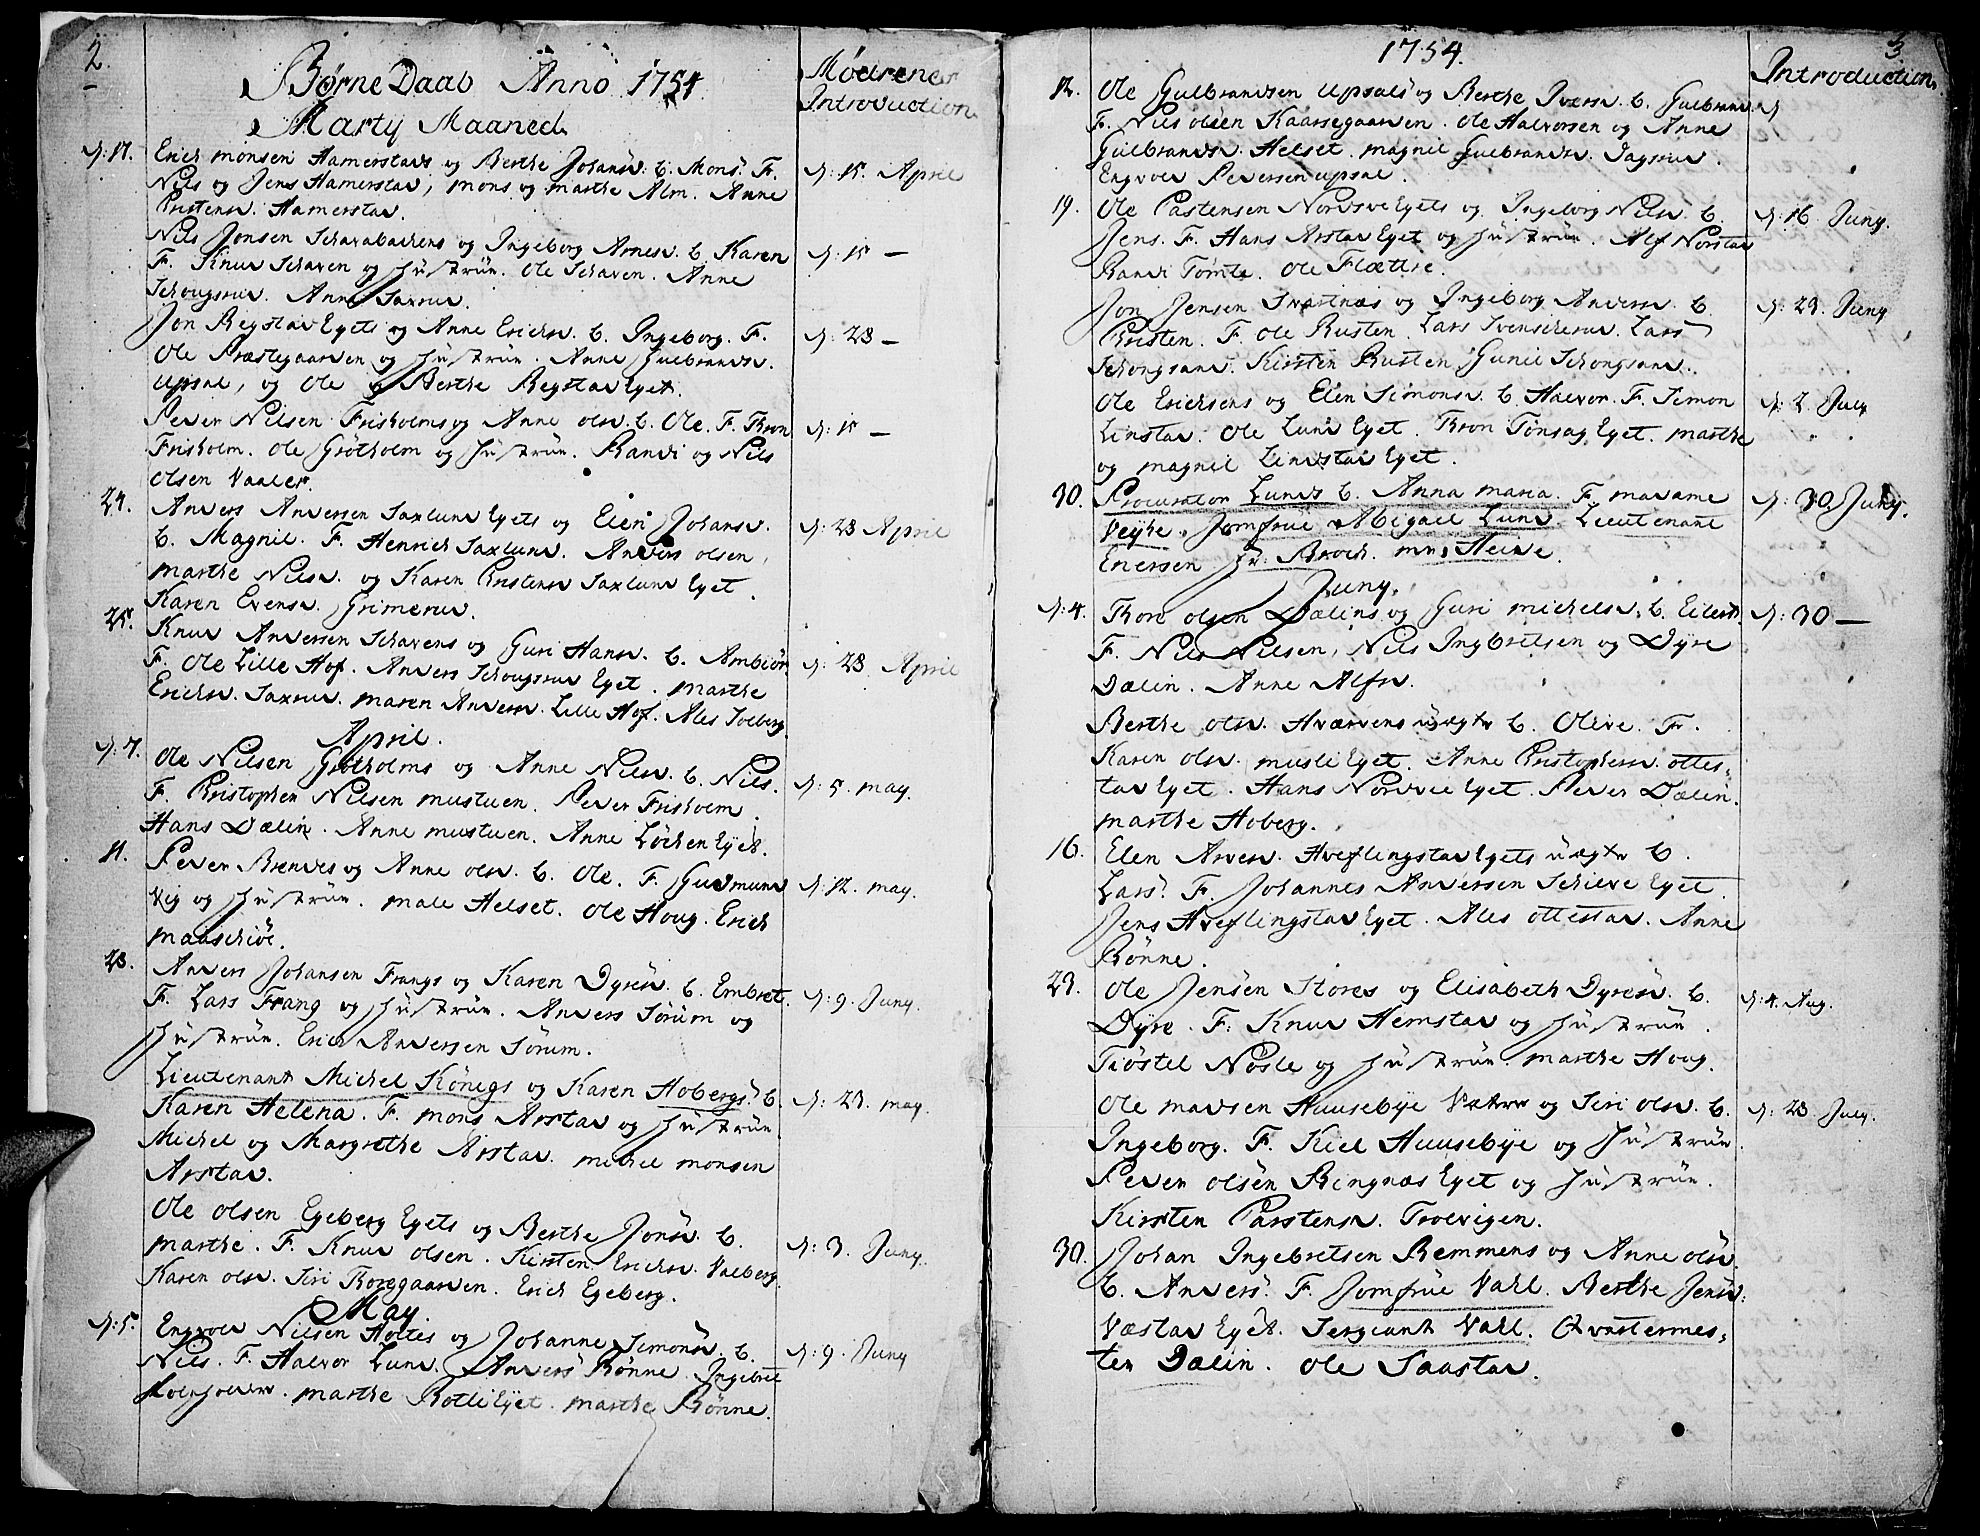 2.
Børne Daab Anno 1754.
Marty Maaned
Mødrenes
Introduction
d: 17. Erich Monsen Hamerstads og Berthe Johansd. b. Mons. F.
Nils og Jens Hamerstad, Mons og Marthe Alm. Anne
Christensd. Hamerstad.
d: 15. April
Nils Jonsen Schavabachens og Ingeborg Arnesd. b. Karen
F. Knud Schaven og Hustrue. Ole Schaven. Anne
Schougsrud. Anne Saxrud.
d: 15 —
Jon Regstad Eyets og Anne Erichsd. b. Ingeborg. F.
Ole Præstegaarden og Hustrue. Anne Gulbrandsd.
Upsal, og Ole og Berthe Regstad Eyet.
d: 28 —
Peder Nilsen Frisholms og Anne Olsd. b. Ole. F. Thron
Frisholm. Ole Grötholm og Hustrue. Randi og Nils
Olsen Vaaler.
d: 15 —
24. Anders Andersen Saxlund Eyets og Elen Johansd.
b. Magnil. F. Henrich Saxlund. Anders Olsen,
Marthe Nilsd. og Karen Christensd Saxlund Eyet.
Karen Evensd. Grimerud.
d: 28 April
25. Knud Andersen Schavens og Guri Hansd. b. Ambiör
F. Ole Lille Hof. Anders Schougsrud Eyet. Marthe
Erichsd. Saxrud. Maren Andersd. Lille Hof. Ales Solberg.
d: 28. April
April.
d: 7. Ole Nilsen Grötholms og Anne Nilsd. b. Nils.
F. Christopher Nilsen Mustuen. Peder Frisholm.
Hans Dælin. Anne Mustuen. Anne Löchen Eyet.
d: 5. May.
11. Peder Brendes og Anne Olsd. b. Ole. F. Gudmund
Vig og Hustrue. Male Helset. Ole Houg. Erich
Maaschiöe.
d: 12. May.
28. Anders Johansen Frangs og Karen Dyresd. b. Embret.
F. Lars Frang og Hustrue. Anders Sörum og
Hustrue. Erich Andersen Sörum.
d: 9. Juny.
Lieutenant Michel Königs og Karen Hobergs b.
Karen Helena. F. Mons Arstad og Hustrue
Michel og Margrethe Arstad. Michel Monsen
Arstad.
d: 23. May.
Ole Olsen Egeberg Eyets og Berthe Jonsd. b.
Marthe. F. Knud Olsen. Kirsten Erichsd. Valberg.
Karen Olsd. Siri Borggaarden. Erich Egeberg.
d: 3. Juny.
May.
d: 5. Engvold Nilsen Holtes og Johanne Simonsd. b.
Nils. F. Halvor Lund. Anders Rönne. Ingebret
Marthe Rotli Eyet. Marthe Rönne.
d: 9. Juny
1754.
3.
Introduction
12. Ole Gulbrandsen Upsals og Berthe Iversd. b. Gulbrand
F. Nils Olsen Kaarsegaarden. Ole Halvorsen og Anne
Gulbrandsd. Helset. Magnil Gulbrandsd. Dagsrud.
Engvold Pedersen Upsal.
d
19. Ole Castensen Nordsve Eyets og Ingeborg Nilsd. b.
Jens. F. Hans Arstad Eyet og Hustrue. Alf Norstad
Randi Tömte. Ole Flættre.
d: 16. Juny.
Jon Jensen Svartnæs og Ingeborg Andersd. b.
Christen. F. Ole Rusten. Lars Svenscherud. Lars
Schongsand. Kirsten Rusten. Gunil Schongsand.
d: 23. Juny
Ole Erichsens og Elen Simonsd. b. Halvor. F. Simon
Linstad. Ole Lund Eyet. Thron Tönsag Eyet. Marthe
og Magnil Lindstad Eyet.
d: 2. July
30. Procurator Lunds b. Anna Maria. F. Madame
Veyhe. Jomfrue Abigael Lund. Lieutenant
Enersen Hr. Broch. Heide.
d: 30. Juny.
Juny.
d: 4. Thord Olsen Dælins og Guri Michelsd. b. Eilert.
F. Nils Nilsen, Nils Ingbretsen og Dyre
Dælin. Anne Alfsd.
d: 30 —
Berthe Olsd. Hværvens uægte b. Olive. F.
Karen Olsd. Musli Eyet. Anne Christophersd. Ottes-
tad Eyet. Hans Nordvie Eyet. Peder Dælin.
Marthe Hoberg.
16. Elen Arnesd. Hveflingstad Eyets uægte b.
Lars. F. Johannes Andersen Schieve Eyet
Jens Hveflingstad Eyet. Ales Ottestad. Anne
Rönne.
23. Ole Jensen Stores og Elisabeth Dyresd. b.
Dyre. F: Knud Hemstad og Hustrue.
Tiöstel Nösle og Hustrue. Marthe Houg.
d: 4. Aug.
Ole Madsen Huusebye og Siri Olsd. b.
Ingeborg. F. Kiel Huusebye og Hustrue
Peder Olsen Ringnæs Eyet og Hustrue.
Kirsten Carstensd. Troevigen.
d: 28 July.
30. Johan Ingebretsen Remmens og Anne Olsd
b. Anders. F. Jomfrue Vall. Berthe Jensd:
Væstad Eyet. Sergiant Vall. Qvartermes-
ter Dælin. Ole Saastad.